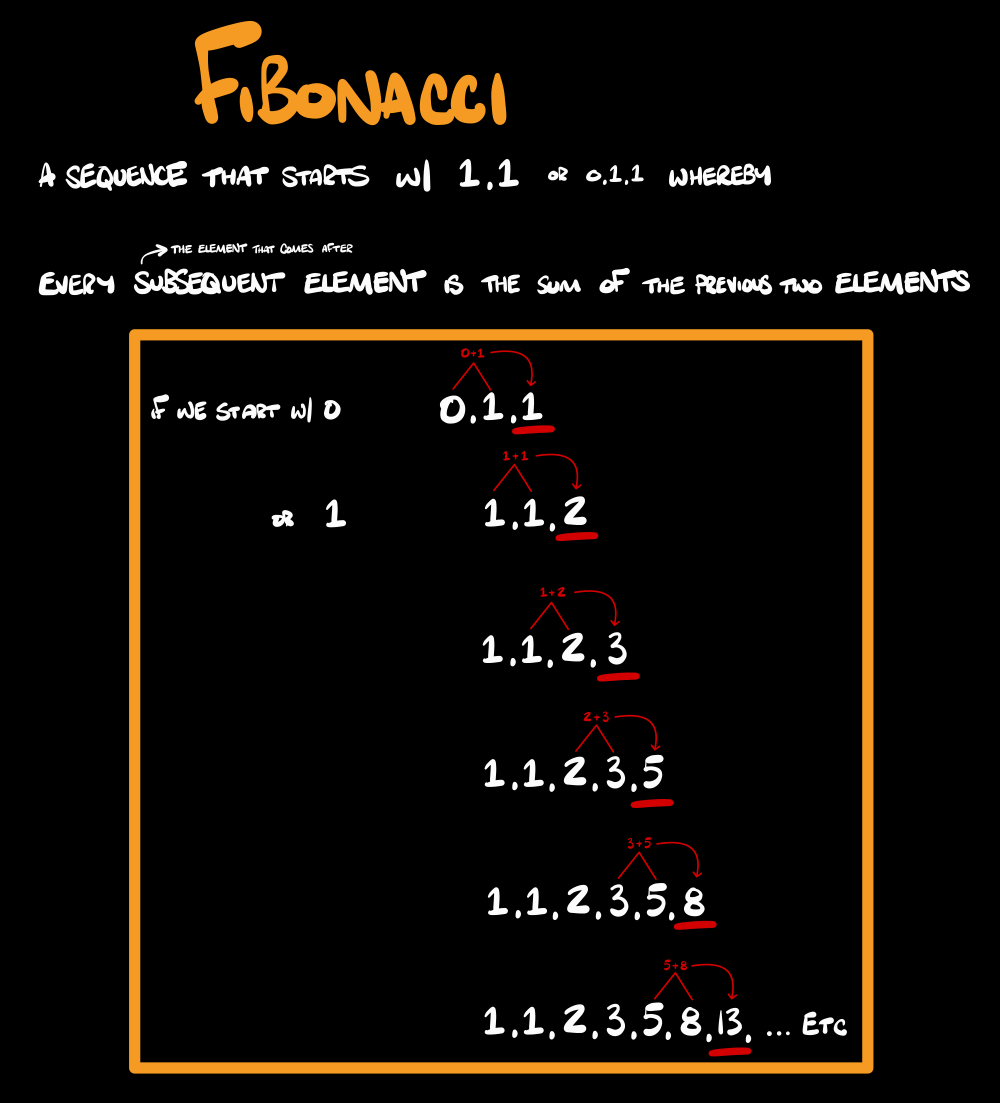 FIBONACCI
A SEQUENCE THAT STARTS W/ 1,1 OR 0,1,1 WHEREBY
THE ELEMENT THAT COMES AFTER
EVERY SUBSEQUENT ELEMENT IS THE SUM OF THE PREVIOUS TWO ELEMENTS
0+1
IF WE START W/ 0 0,1,1
1+1
OR 1 1,1,2
1+2
1,1,2,3
2+3
1,1,2,3,5
3+5
1,1,2,3,5,8
5+8
1,1,2,3,5,8,13, ... ETC